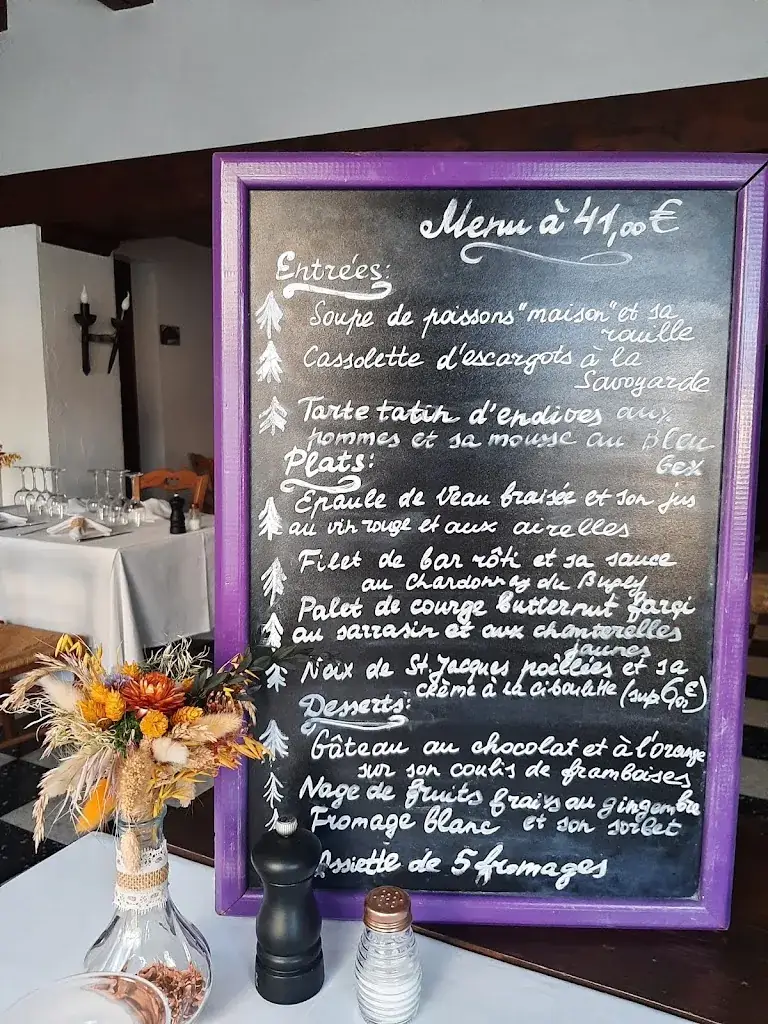 Menu à 41,00€
Entrées:
Soupe de poissons "maison" et sa
rouille
Cassolette d'escargots à la
Savoyarde
Tarte tatin d'endives aux
pommes et sa mousse au Bleu
Gex
Plats:
Epaule de Veau braisée et son jus
au vin rouge et aux airelles
Filet de bar rôti et sa sauce
au Chardonnay du Bugey
Palet de courge butternut farçi
au sarrasin et aux chanterelles
jaunes
Noix de St Jacques poëllées et sa
crème à la ciboulette (sup 6,0€)
Desserts:
Gâteau au chocolat et à l'orange
sur son coulis de framboises
Nage de fruits frais au gingembre
et son sorbet
Fromage blanc
Assiette de 5 fromages